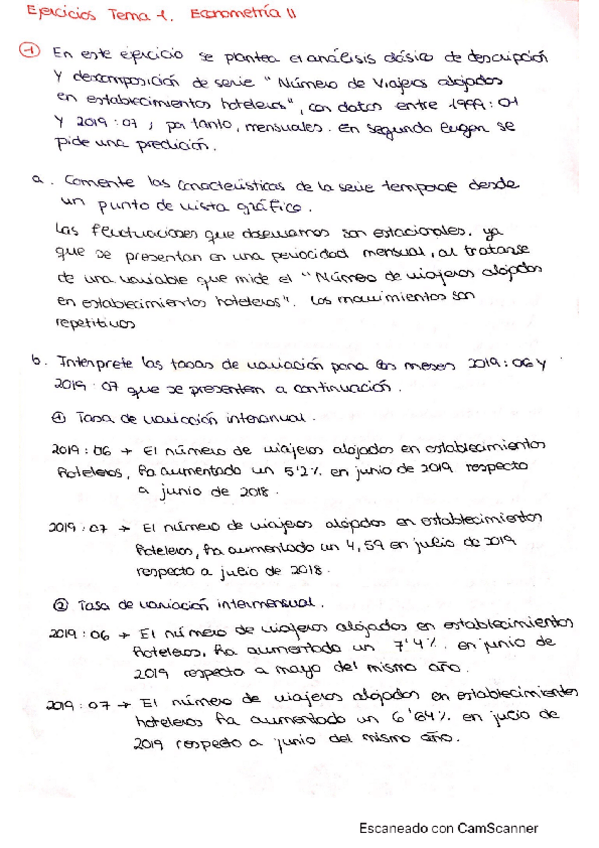 Ejercicios Tema 1. Econometría II
① En este ejercicio se plantea el análisis clásico de descripción
y descomposición de serie "Número de Viajeros alojados
en establecimientos hoteleros", con datos entre 1999:01
y 2019:07, por tanto, mensuales. En segundo lugar se
pide una predicción.
a. Comente las características de la serie temporal desde
un punto de vista gráfico.
Las fluctuaciones que observamos son estacionales, ya
que se presentan en una periocidad mensual, al tratarse
de una variable que mide el "Número de viajeros alojados
en establecimientos hoteleros". Los movimientos son
repetitivos
b. Interprete las tasas de variación para los meses 2019:06 y
2019:07 que se presentan a continuación.
① Tasa de variación interanual.
2019:06 → El número de viajeros alojados en establecimientos
hoteleros, ha aumentado un 5'2% en junio de 2019 respecto
a junio de 2018.
2019:07 → El número de viajeros alojados en establecimientos
hoteleros, ha aumentado un 4,59 en julio de 2019
respecto a julio de 2018.
② Tasa de variación intermensual.
2019:06 → El número de viajeros alojados en establecimientos
hoteleros, ha aumentado un 7'4% en junio de
2019 respecto a mayo del mismo año.
2019:07 → El número de viajeros alojados en establecimientos
hoteleros ha aumentado un 6'64% en julio de
2019 respecto a junio del mismo año.
Escaneado con CamScanner